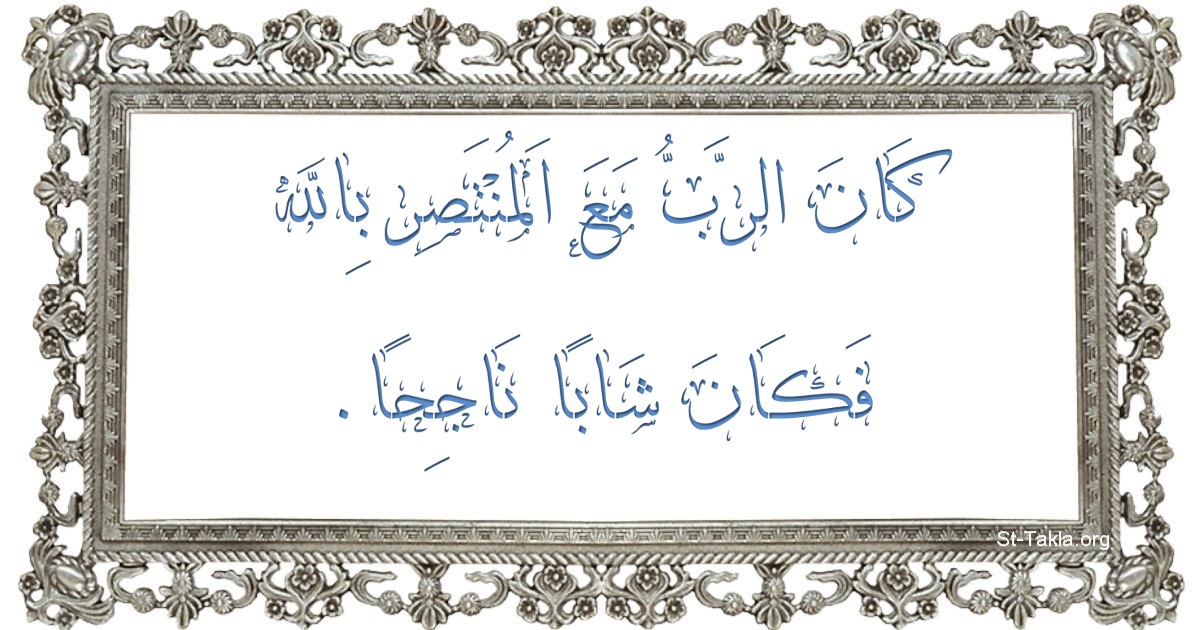 كَانَ الرَّبُّ مَعَ اَلمُنْتَصِرِ بِاللَّهْ
فَكَانَ شَابًا نَاجِحًا .
St-Takla.org